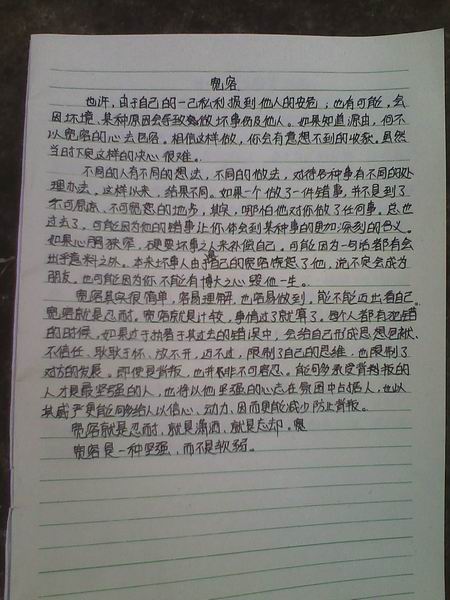 宽容
也许，由于自己的一己私利损到他人的安危；也有可能，会
因环境、某种原因会导致做坏事伤及他人。如果知道源由，何不
以宽容的心去包容。相信这样做，你会有意想不到的收获。虽然
当时下定这样的决心很难。
不同的人有不同的想法，不同的做法，对待各种事有不同的处
理办法。这样以来，结果不同。如果一个做了一件错事，并不是到了
不可原谅、不可宽恕的地步，其实，哪怕他对你做了任何事，总也
过去了，可能因为他的错事让你体会到某种事的更加深刻的含义。
如果心胸狭窄，硬要坏事之人来补偿自己，可能因为一句话都有会
出乎意料之外。本来坏事人由于自己的宽容饶恕了他，说不定会成为
朋友。也可能因为你不能有博大之心毁他一生。
宽容其实很简单，容易理解，也容易做到，能不能迈出看自己。
宽容就是忍耐。宽容就是计较，事情过了就算了。每个人都有犯错
的时候，如果过于执着于其过去的错误中，会给自己形成思想包袱、
不信任、耿耿于怀、放不开，迈不过，限制了自己的思维，也限制了
对方的发展。即使是背叛，也并非不可容忍。能够承受背叛的
人才是最坚强的人，也将以他坚强的心志在氛围中占据人，也以
其威严更能够给人以信心、动力，因而更能减少防止背叛。
宽容就是忍耐，就是潇洒，就是忘却。
宽容是一种坚强，而不是软弱。